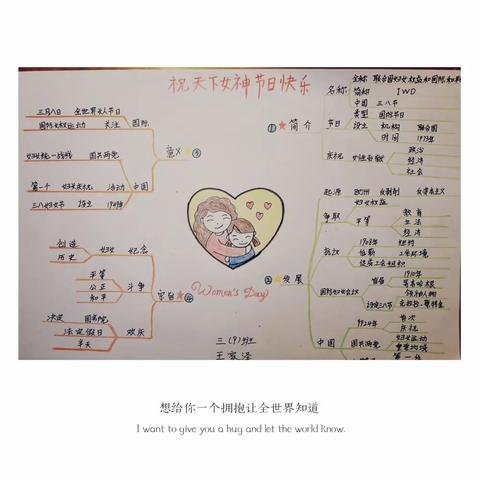 祝天下女神节日快乐
三月八日 全世界女人节日
国际女权运动 关注 国际
意义 ③
妇女统一战线 国共两党
第一个 妇女庆祝 活动 中国
三八妇女节 设立 1949年
① 简介
全称 联合国妇女权益和国际和平
名称 简称 IWD
中国 三八节
类型 国际节日
节日 设立 机构 联合国
时间 1975年
庆祝 女性贡献 政治
经济
社会
② 发展
起源 女权主义
妇女权益
争取 平等 教育
立法
经济
抗议 1908年 纽约
工作环境
国际妇女会议 1910年
设定三八节
中国 1924年 首次
庆祝
国共两党 妇女运动
第一个
创造 妇女 纪念
历史
平等
公正 斗争
和平
宗旨 ④
决定 国务院
法定假日 欢乐
半天
Women's Day
三(9)班
想给你一个拥抱让全世界知道
I want to give you a hug and let the world know.